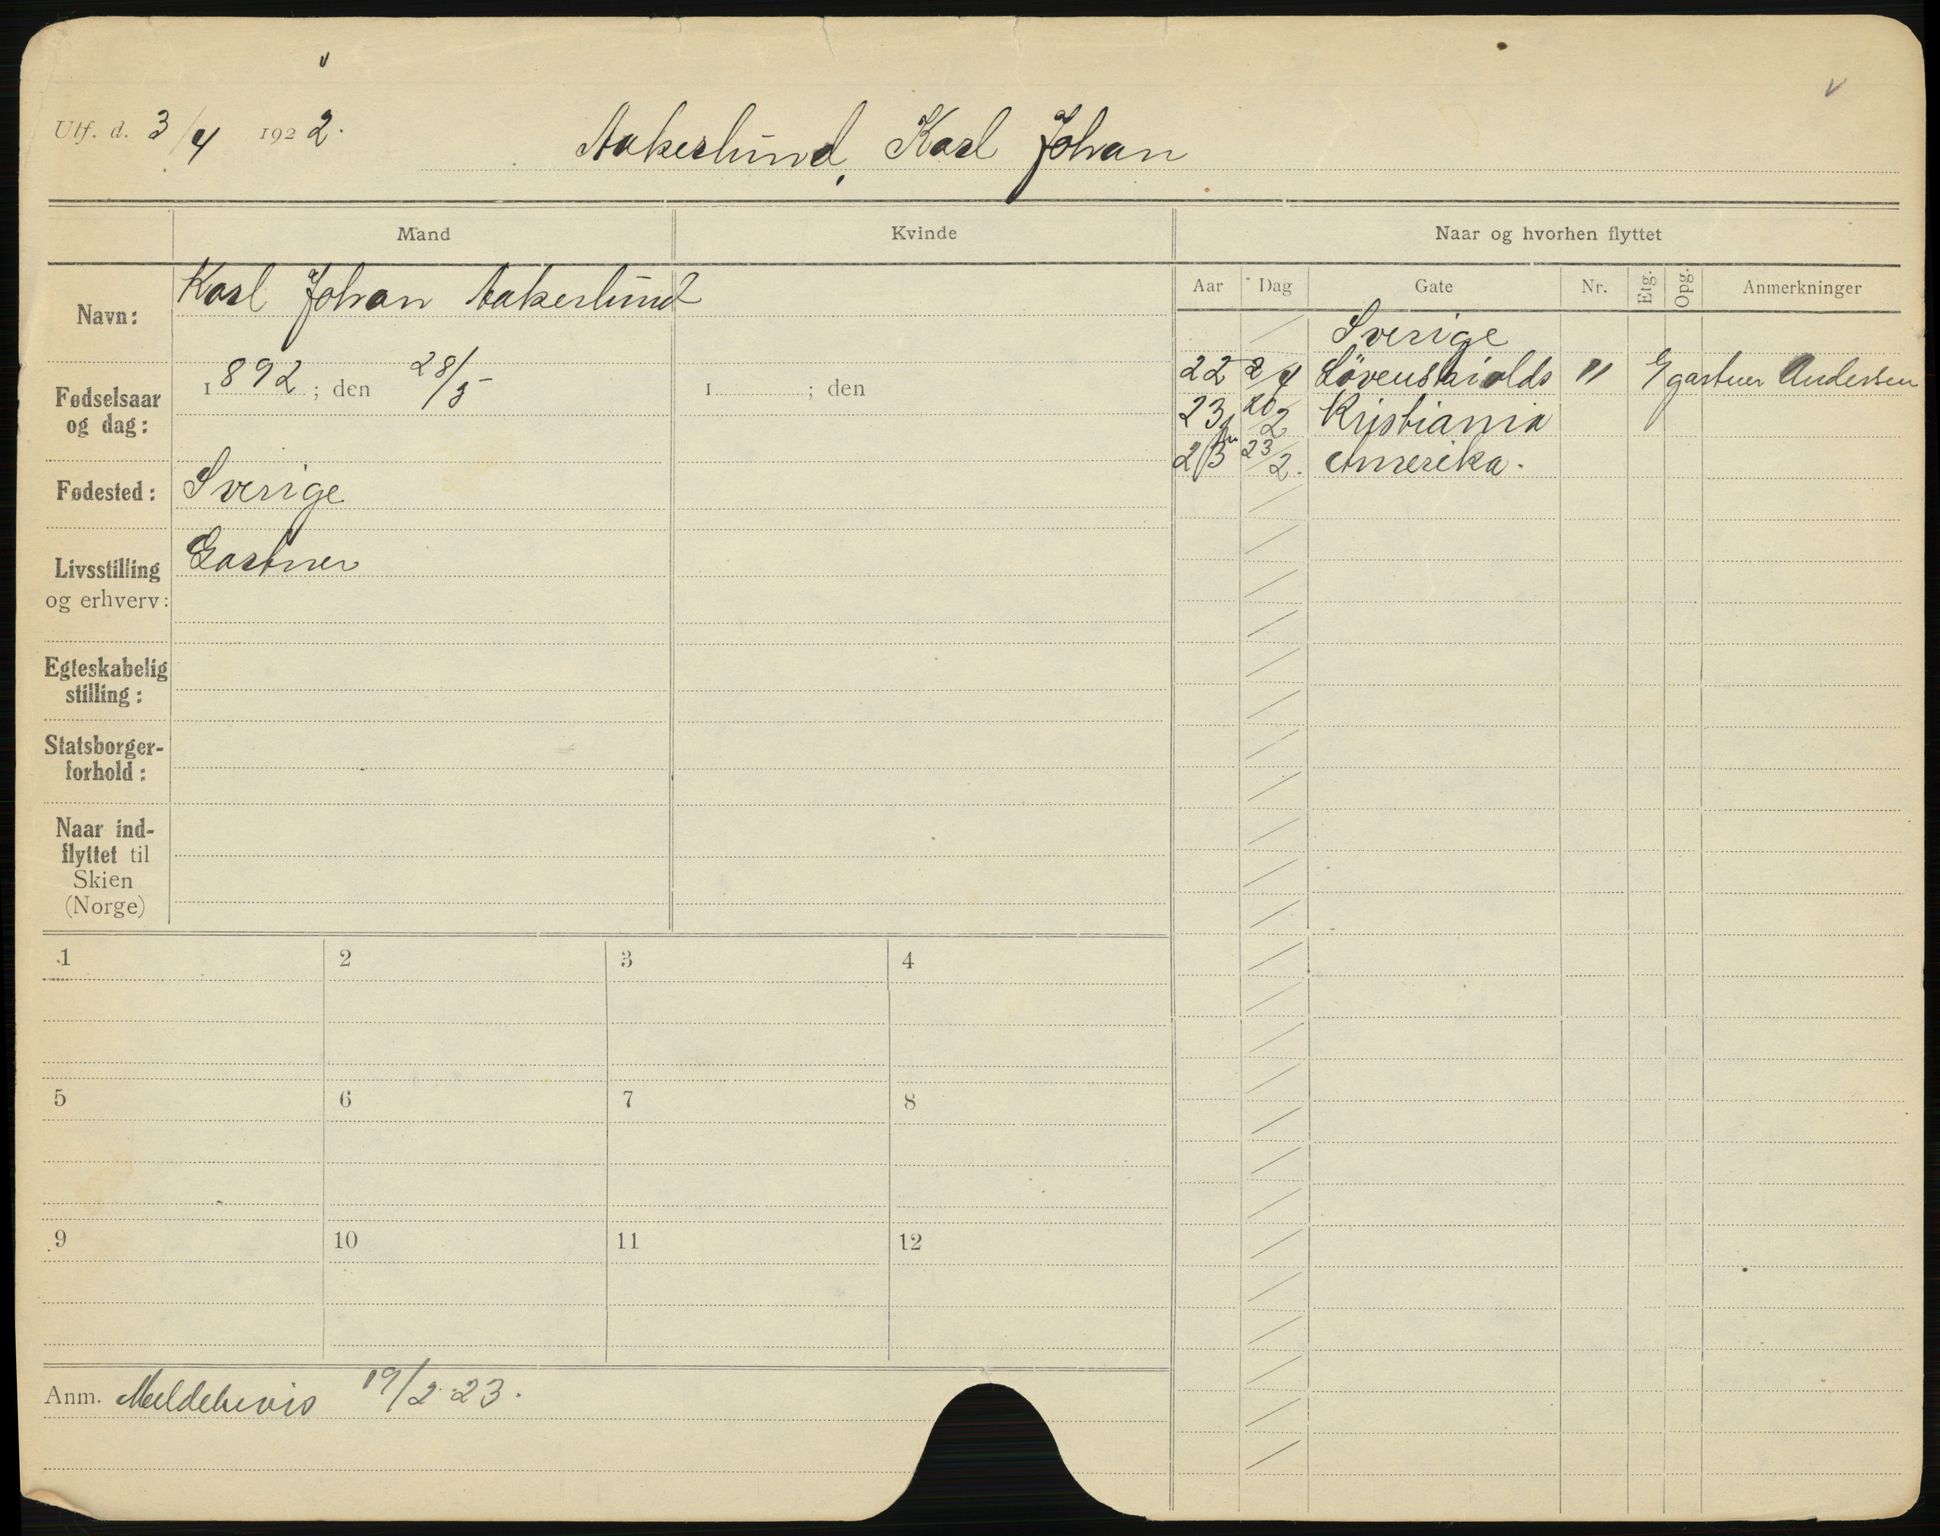 Utf. d. 3/4 1922.
Aakerlund, Karl Johan
Mand Kvinde Naar og hvorhen flyttet
Aar Dag Gate Nr. Etg. Opg. Anmerkninger
Navn: Karl Johan Aakerlund
Fødselsaar og dag: 1892; den 28/5 1 ; den
Fødested: Sverige
Livsstilling og erhverv: Gartner
Egteskabelig stilling:
Statsborgerforhold:
Naar indflyttet til Skien (Norge)
Sverige
22 2/4 Løvenskiolds 11 gartner Andersen
23 20/2 Kristiania
23 23/2. Amerika.
1 2 3 4
5 6 7 8
9 10 11 12
Anm. Meldebevis 19/2 23.